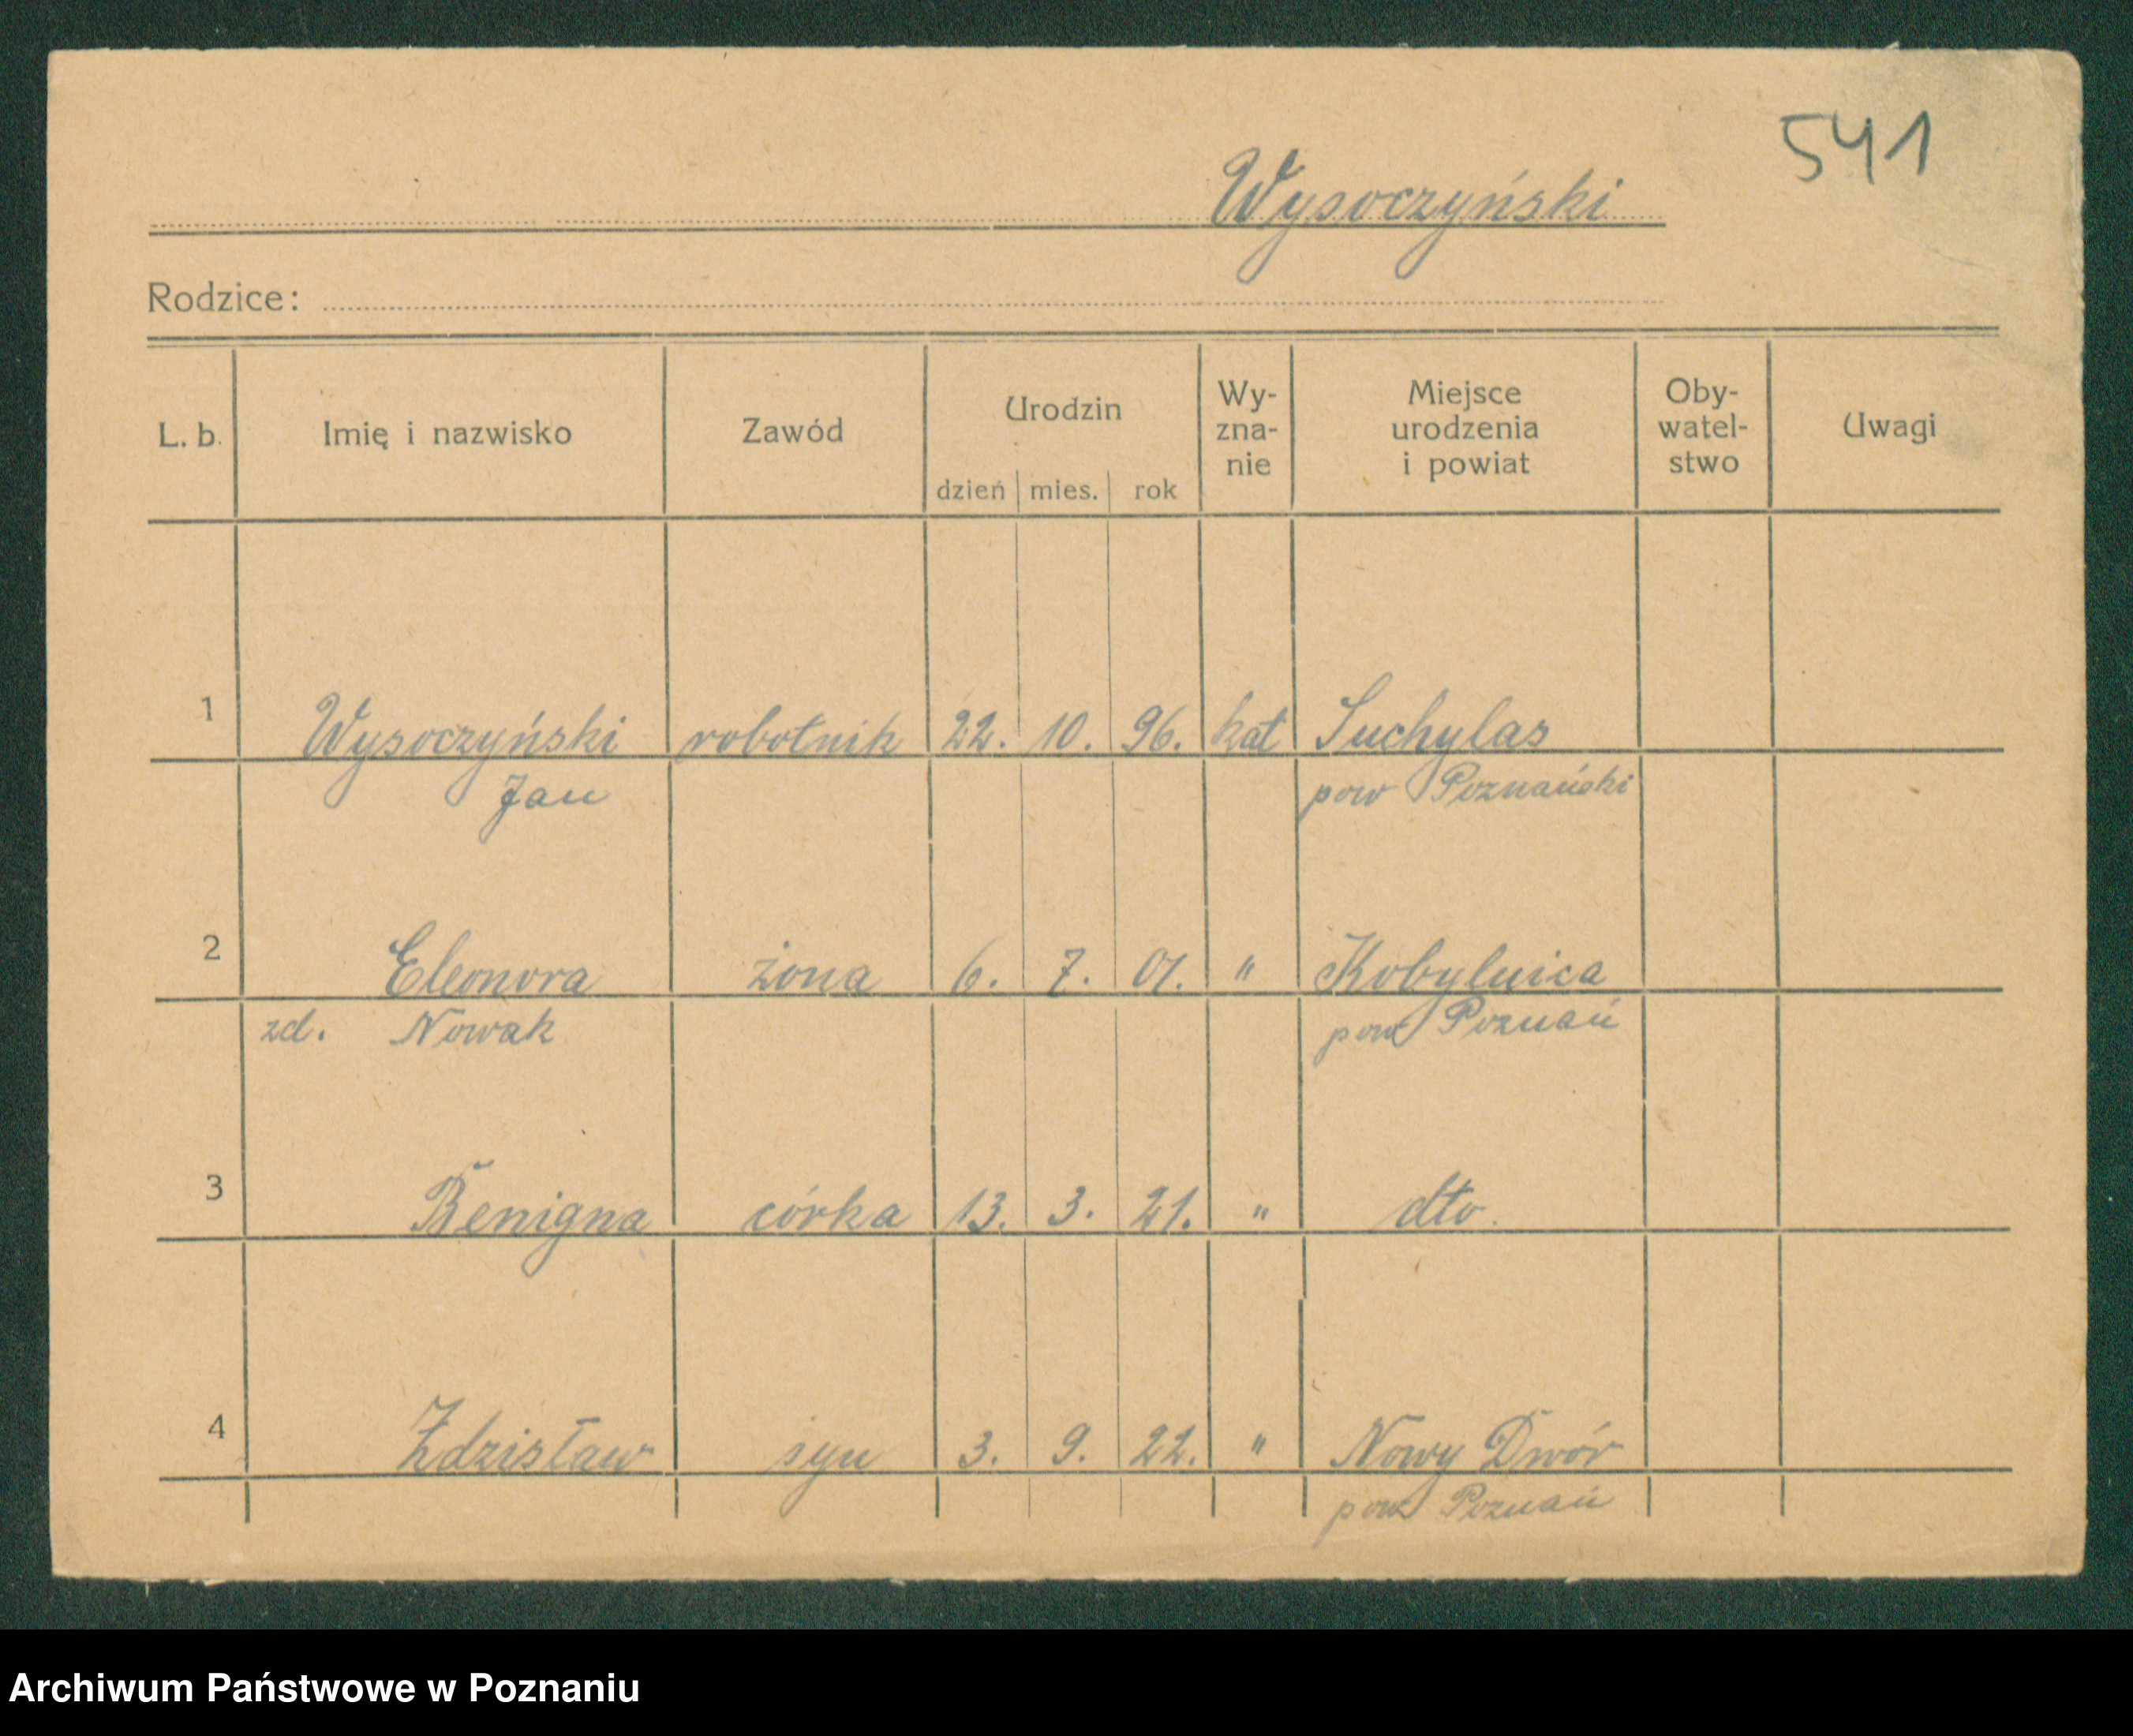 541
Wysoczyński
Rodzice:
L. b. Imię i nazwisko Zawód Urodzin dzień mies. rok Wy-zna-nie Miejsce urodzenia i powiat Oby-watel-stwo Uwagi
1 Wysoczyński robotnik 22. 10. 96. kat Suchylas
Jan pow Poznański
2 Eleonora żona 6. 7. 01. " Kobylnica
zd. Nowak pow Poznań
3 Benigna córka 13. 3. 21. " dto.
4 Zdzisław syn 3. 9. 22. " Nowy Dwór
pow Poznań
Archiwum Państwowe w Poznaniu